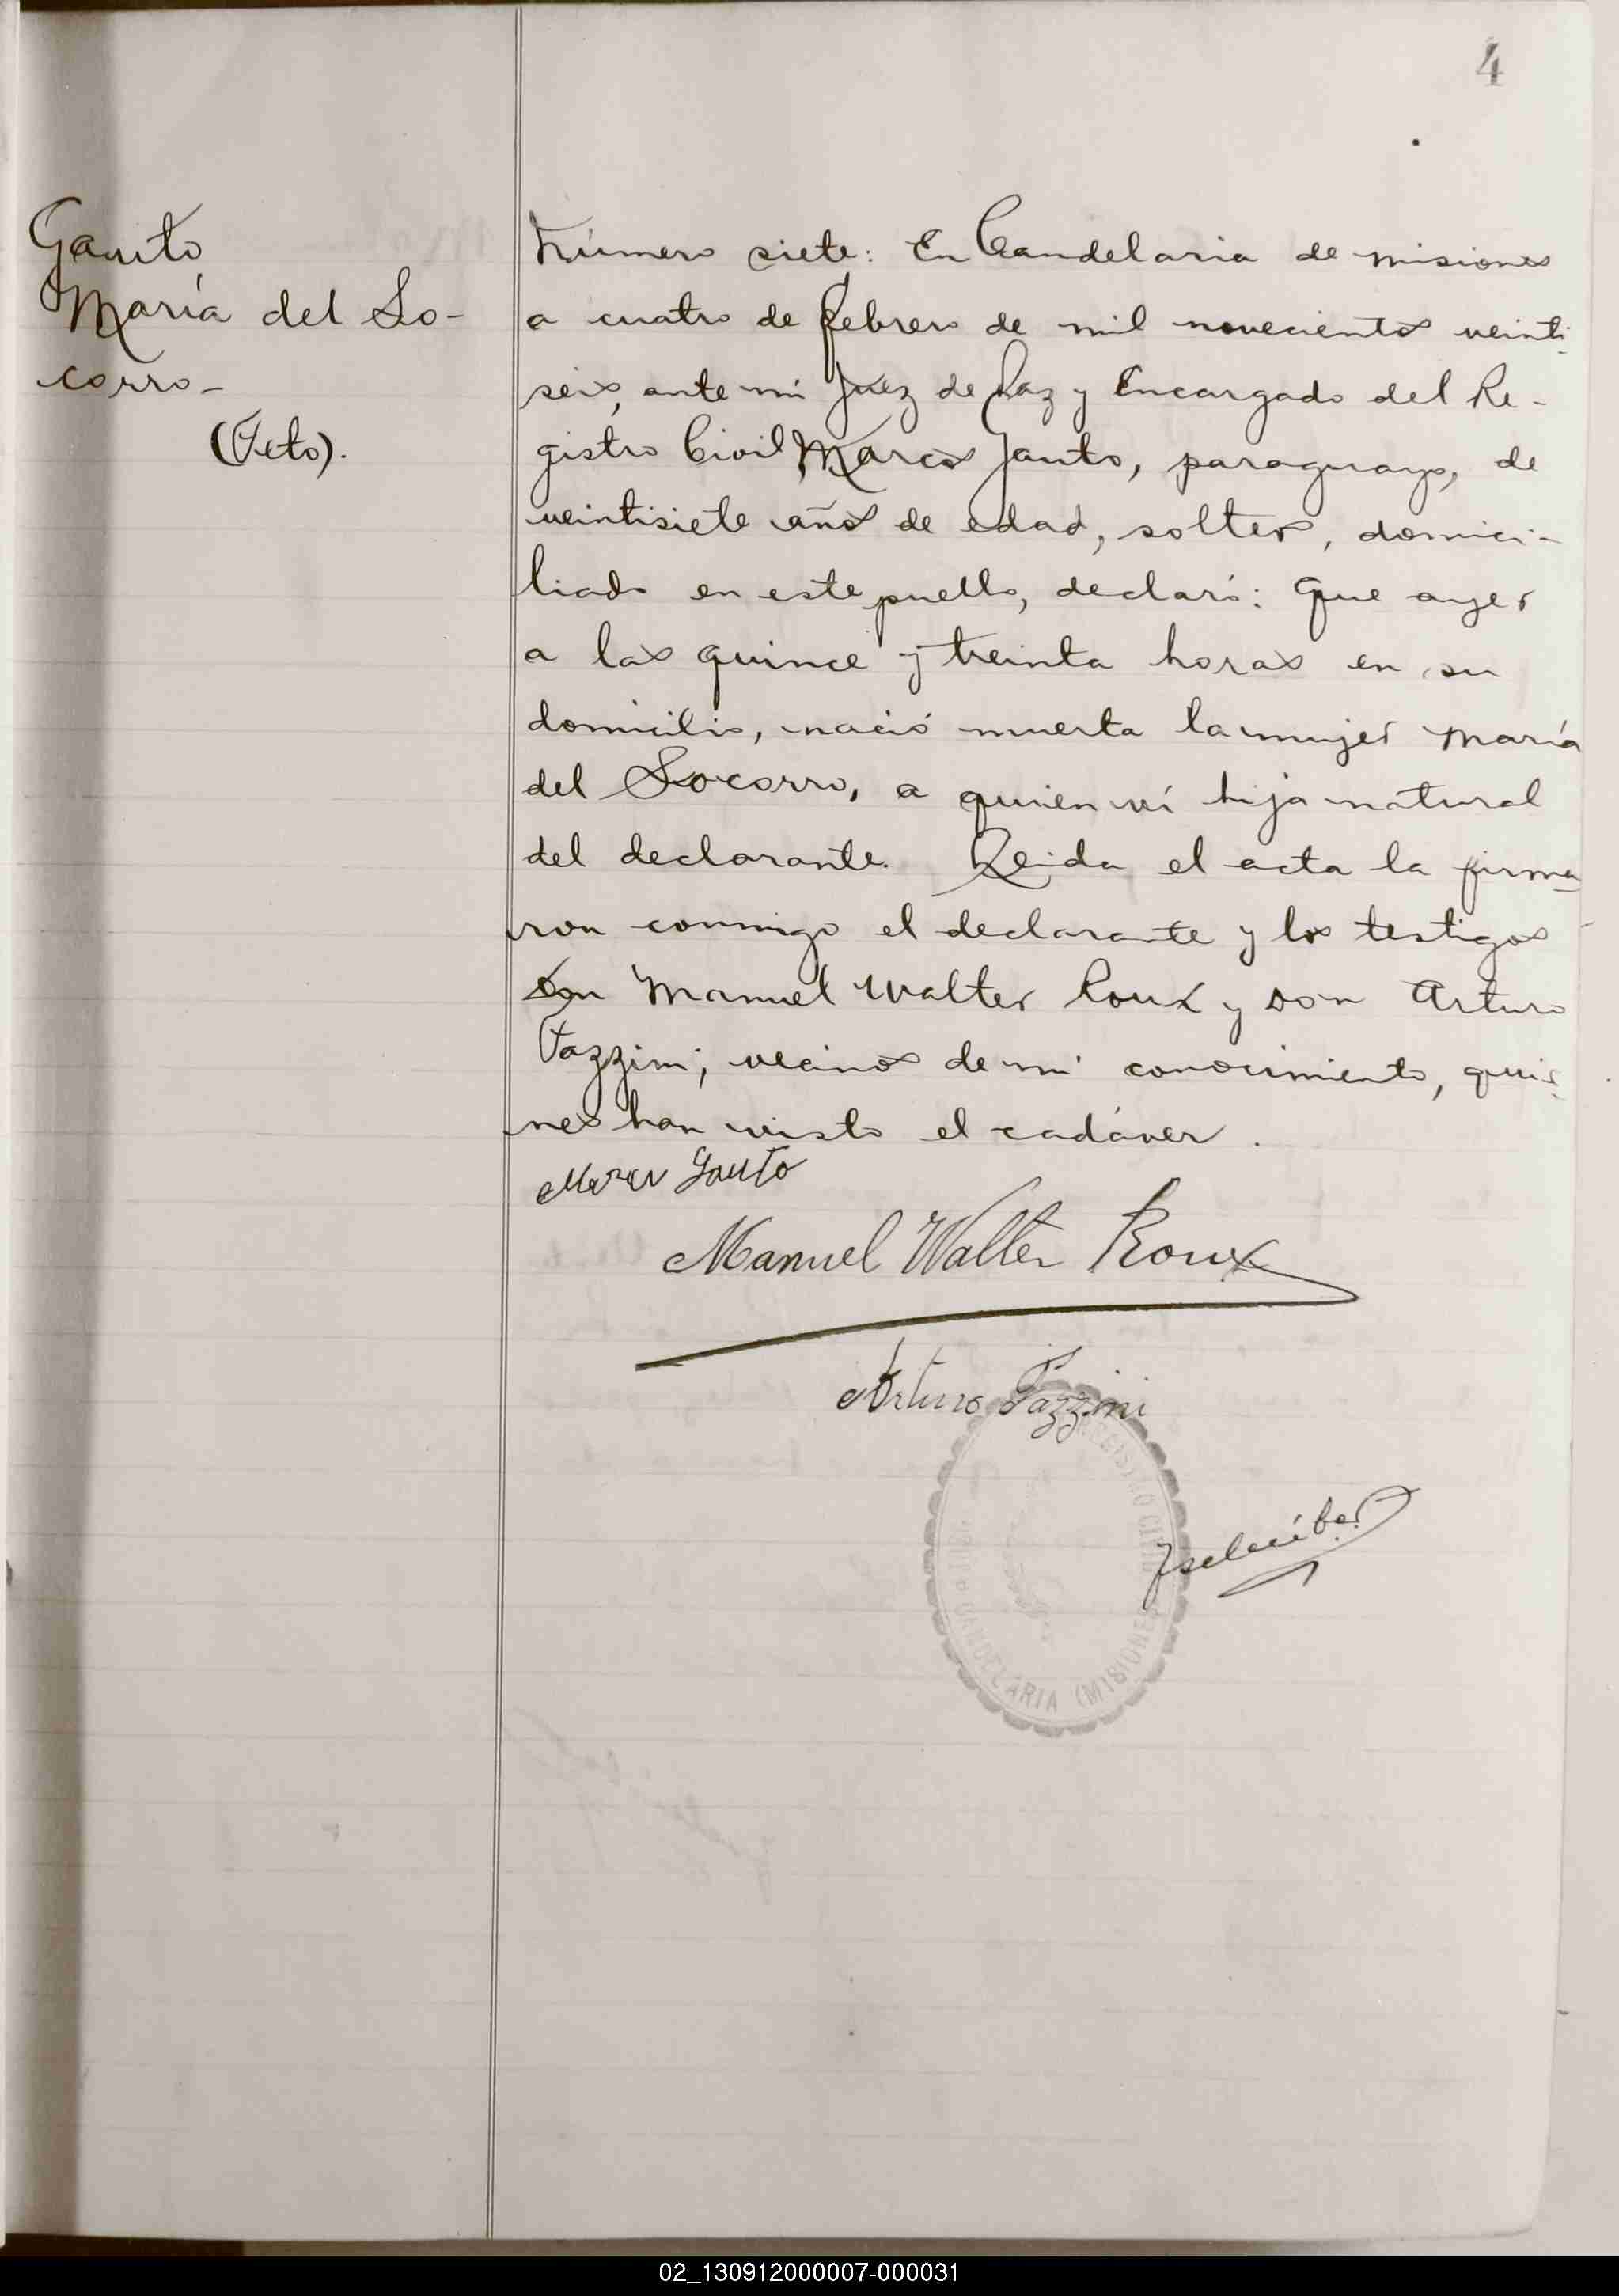 4
Gauto
María del So-
corro-
(Feto).
Número siete: En Candelaria de misiones
a cuatro de febrero de mil novecientos veinti-
seis, ante mí Juez de Paz y Encargado del Re-
gistro Civil, Marcos Gauto, paraguayo, de
veintisiete años de edad, soltero, domici-
liado en este pueblo, declaró: Que ayer
a las quince y treinta horas en su
domicilio, nació muerta la mujer María
del Socorro, a quien ví hija natural
del declarante. Leida el acta la firma-
ron conmigo el declarante y los testigos
Don Manuel Walter Roux y Don Arturo
Pazzini; vecinos de mi conocimiento, quie-
nes han visto el cadáver.
Marcos Gauto
Manuel Walter Roux
Arturo Pazzini
REGISTRO CIVIL
CANDELARIA (MISIONES)
02_130912000007-000031